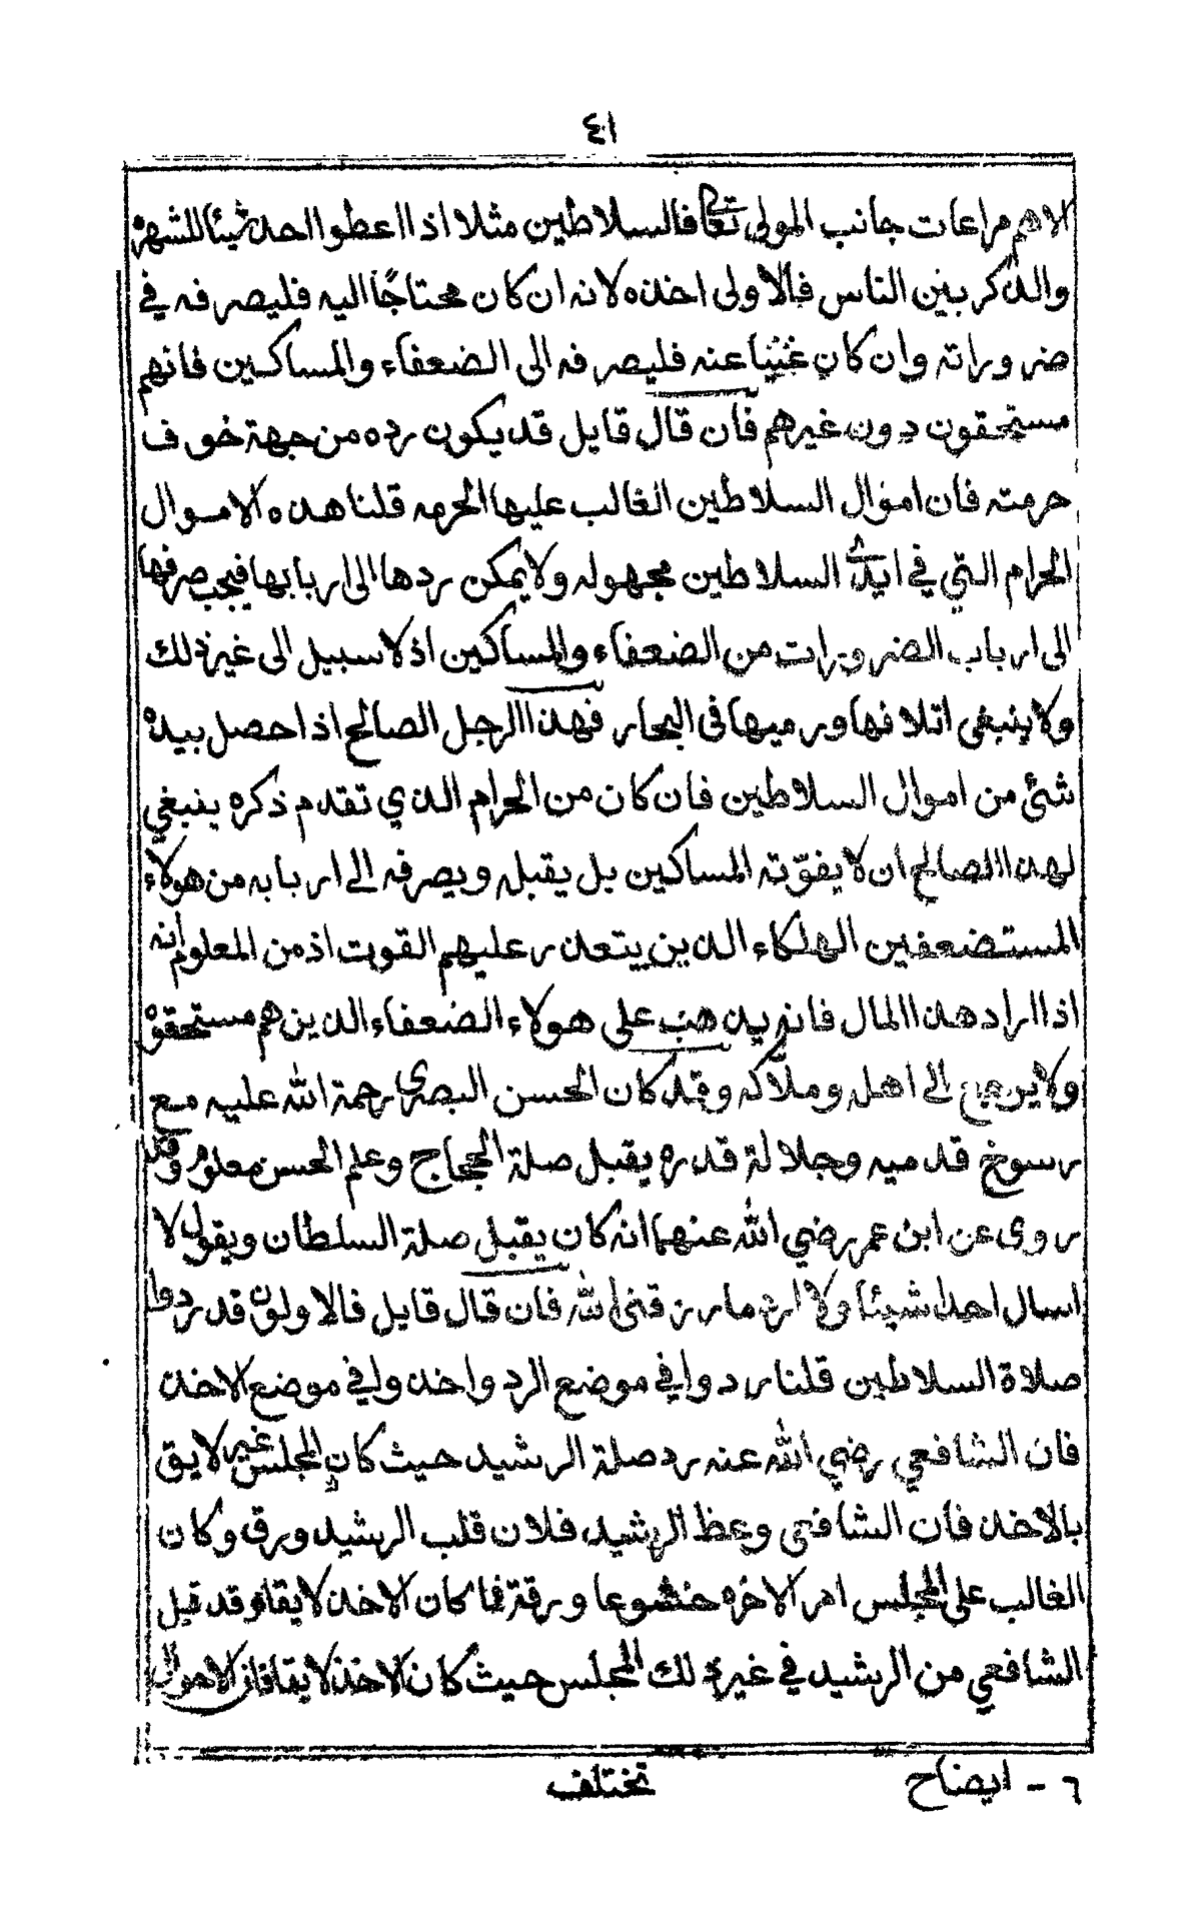 ٤١
الاهم مراعات جانب المولى تعالى فالسلاطين مثلا اذا اعطوا احد شيئا للشهرة
والذكر بين الناس فالاولى اخذه لانه ان كان محتاجًا اليه فليصرفه في
ضروراته وان كان غنيا عنه فليصرفه الى الضعفاء والمساكين فانهم
مستحقون دون غيرهم فان قال قايل قد يكون رده من جهة خوف
حرمته فان اموال السلاطين الغالب عليها الحرمه قلنا هذه الاموال
الحرام التي في ايدى السلاطين مجهوله ولا يمكن ردها الى اربابها فيجب صرفها
الى ارباب الضرورات من الضعفاء والمساكين اذ لا سبيل الى غير ذلك
ولا ينبغي اتلافها ورميها فى البحار فهذا الرجل الصالح اذا حصل بيده
شئ من اموال السلاطين فان كان من الحرام الذي تقدم ذكره ينبغي
لهذا الصالح ان لا يفوّته المساكين بل يقبله ويصرفه الى اربابه من هولاء
المستضعفين الهلكاء الذين يتعذر عليهم القوت اذ من المعلوم انه
اذا اراد هذا المال فانه يذهب على هولاء الضعفاء الذين هم مستحقوه
ولا يرجع الى اهله وملّاكه وقد كان الحسن البصرى رحمة الله عليه مع
رسوخ قدميه وجلالة قدره يقبل صلة الحجاج وعلم الحسن معلوم وقد
روى عن ابن عمر رضي الله عنهما انه كان يقبل صلة السلطان ويقول لا
اسال احدا شيئا ولا ارد ما رزقنى الله فان قال قايل فالاولون قد ردوا
صلاة السلاطين قلنا ردوا في موضع الرد واخذوا في موضع الاخذ
فان الشافعي رضي الله عنه رد صلة الرشيد حيث كان المجلس غير لايق
بالاخذ فان الشافعى وعظ الرشيد فلان قلب الرشيد ورق وكان
الغالب على المجلس امر الاخره خشوعا ورقة فما كان الاخذ لايقا وقد قبل
الشافعي من الرشيد في غير ذلك المجلس حيث كان الاخذ لايقا فان الاحوال
٦ - ايضاح
تختلف